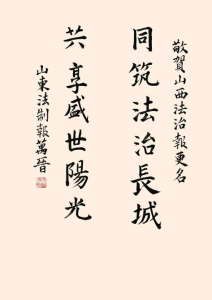 敬賀山西法治報更名
同筑法治長城
共享盛世陽光
山東法制報萬晉